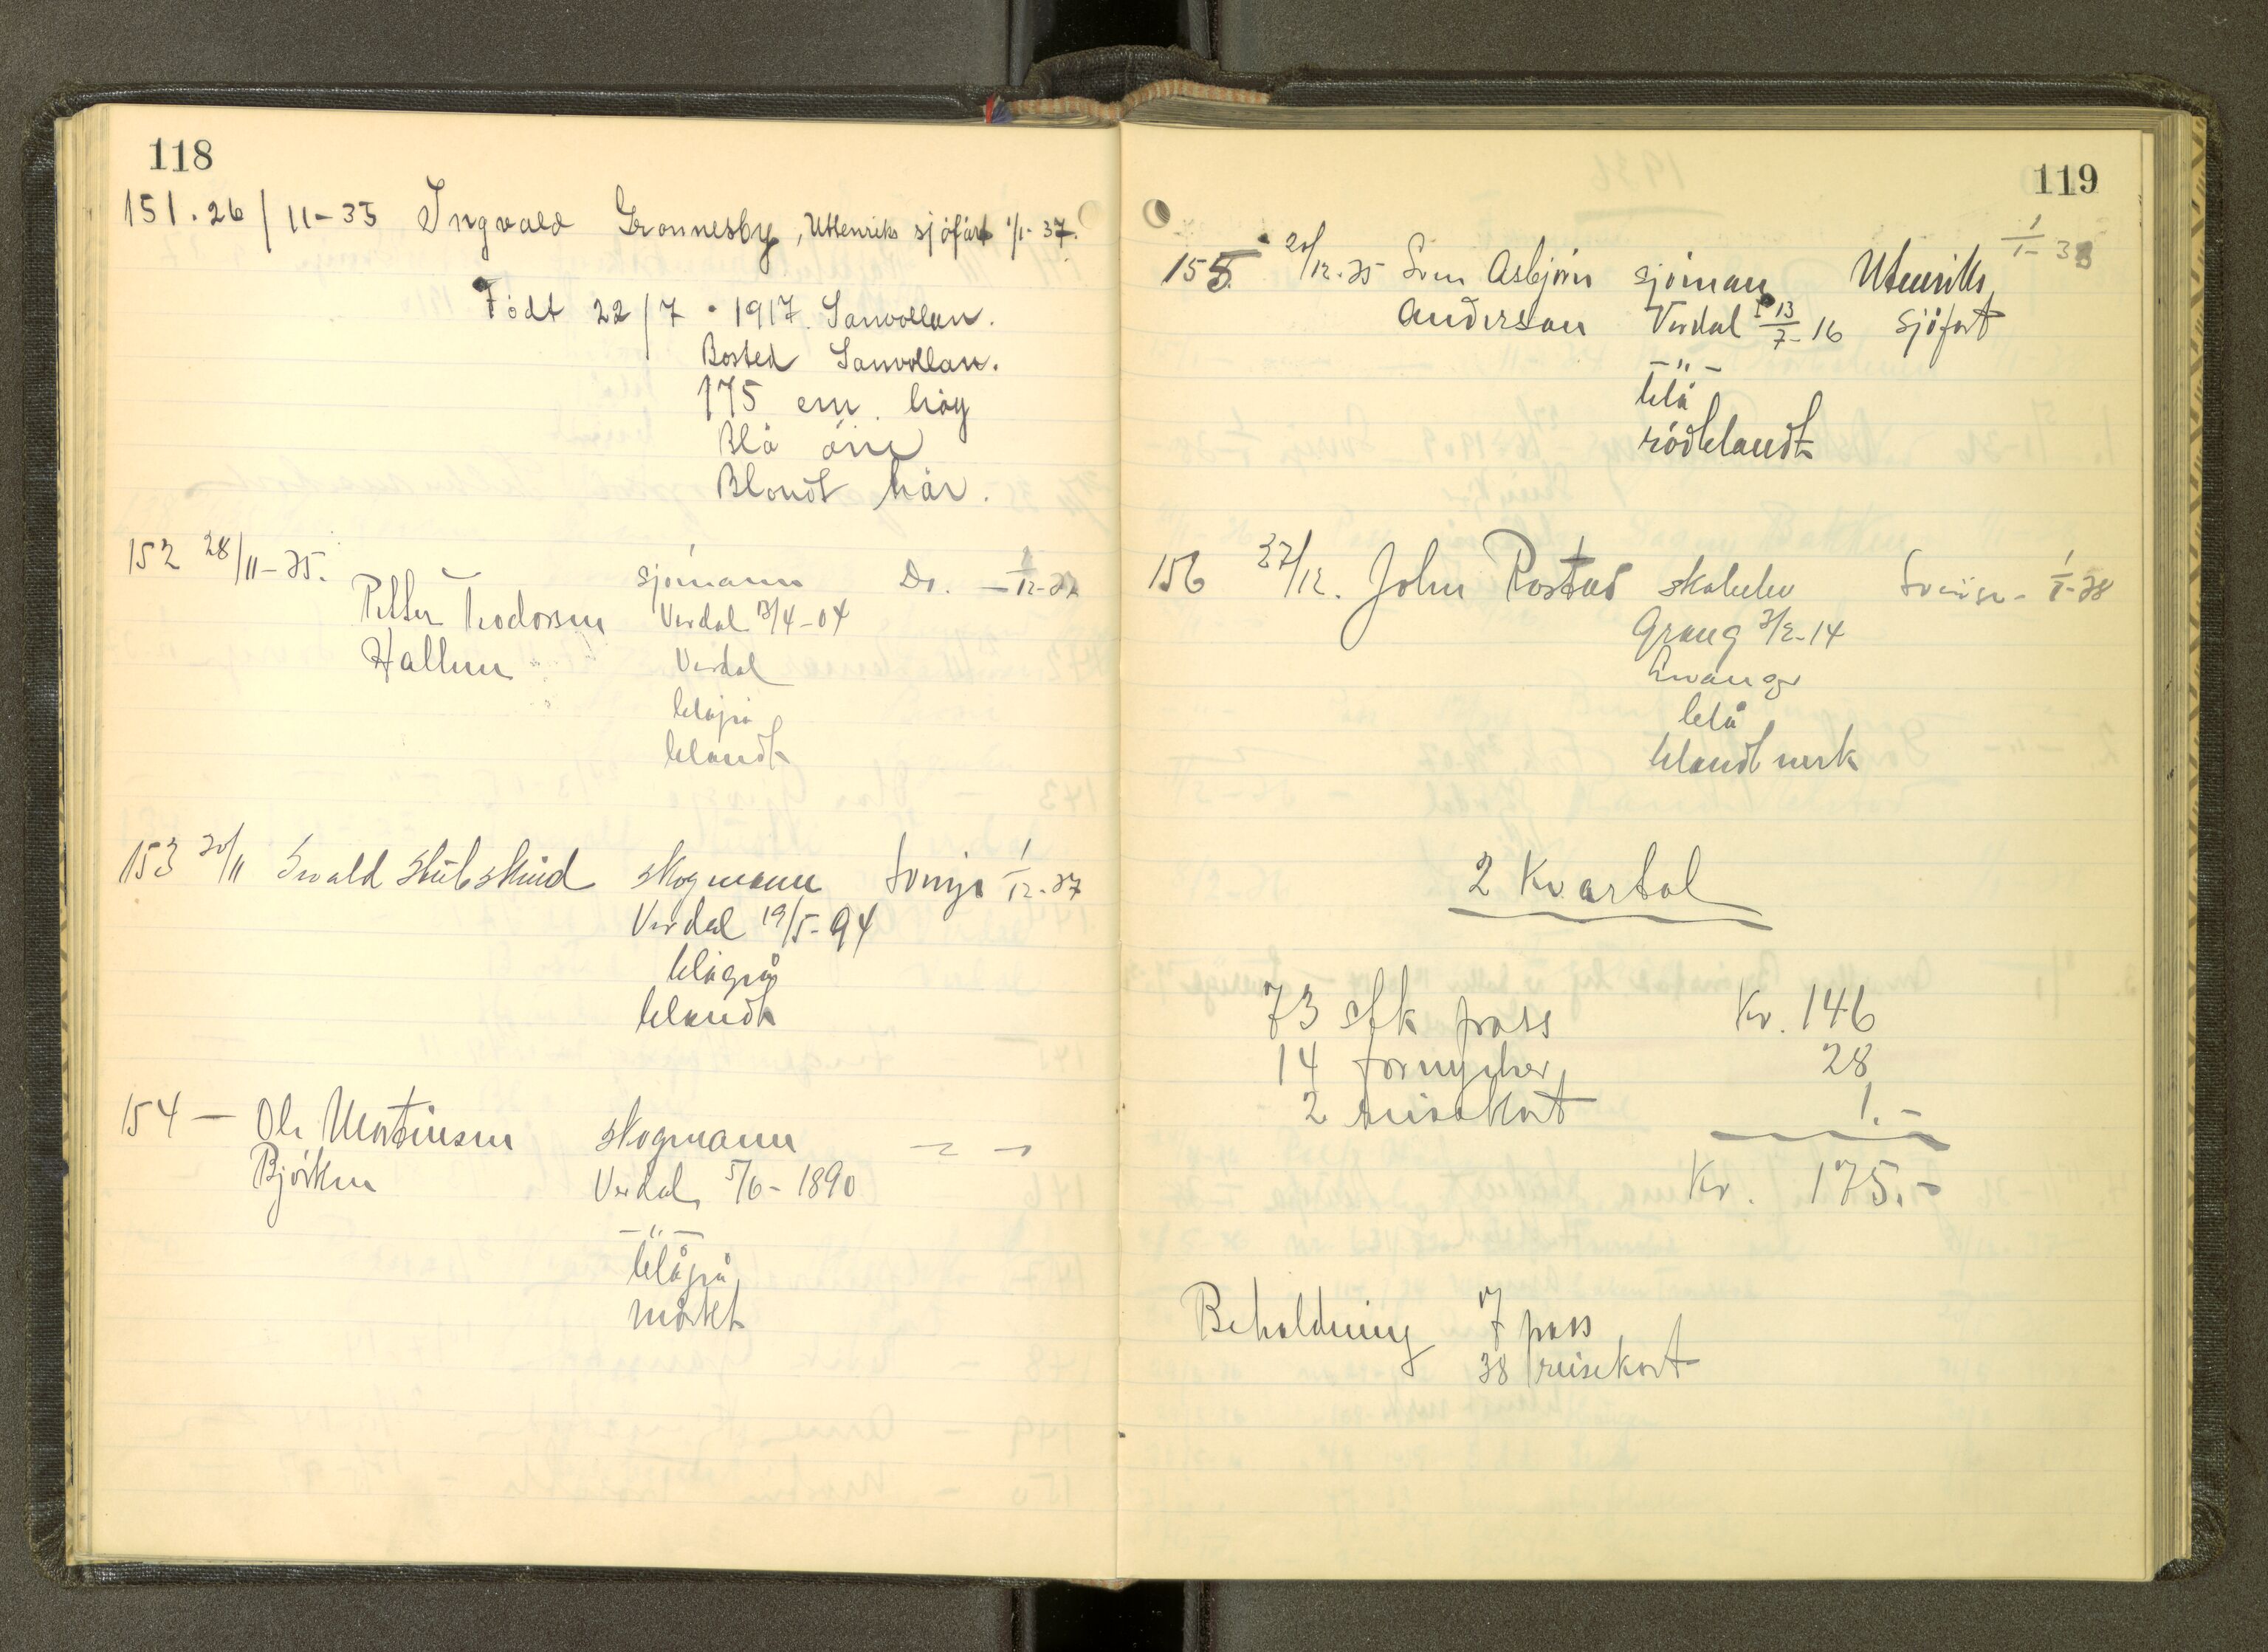 118
151. 26/11-35 Ingvald Gronnesby, Utenriks sjöfart 1/1-37.
Födt 22/7 - 1917. Sanvollan.
Bosted Sanvollan.
175 cm. höy
Blå öine
Blondt hår.
152 28/11-35. sjömann Do. - 1/12-37
Petter Teodorsen Verdal 13/4-04
Hallem Verdal
blågrå
blondt
153 30/11 Evald Stubskind skogmann Sverige 1/12-37
Verdal 19/5-94
blågrå
blondt
154 — Ole Martinsen skogmann — " —
Björken Verdal 5/6-1890
— " —
blågrå
mörkt
119
155. 20/12-35 Sven Asbjörn sjöman Utenriks 1/1-38
Anderson Verdal 13/7-16 Sjöfart
— " —
blå
rödblandt
156 27/12. John Rostad skoleelev Sverige - 1/1-38
Grong 3/2-14
blå
blondt mörk
2 Kvartal
73 stk pass Kr. 146
14 fornyelser 28
2 reisekort 1.-
Kr. 175.-
Beholdning 7 pass
38 reisekort